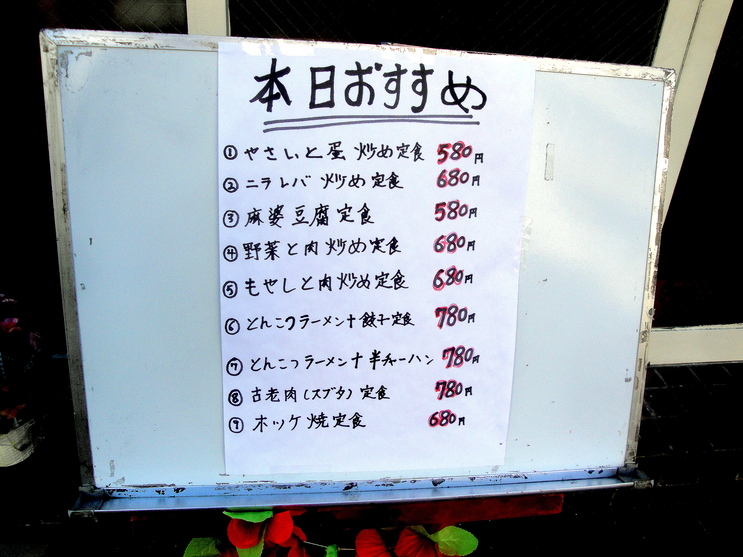 本日おすすめ
①やさいと蛋炒め定食 580円
②ニラレバ炒め定食 680円
③麻婆豆腐定食 580円
④野菜と肉炒め定食 680円
⑤もやしと肉炒め定食 680円
⑥とんこつラーメン+餃子定食 780円
⑦とんこつラーメン+半チャーハン 780円
⑧古老肉(スブタ)定食 780円
⑨ホッケ焼定食 680円